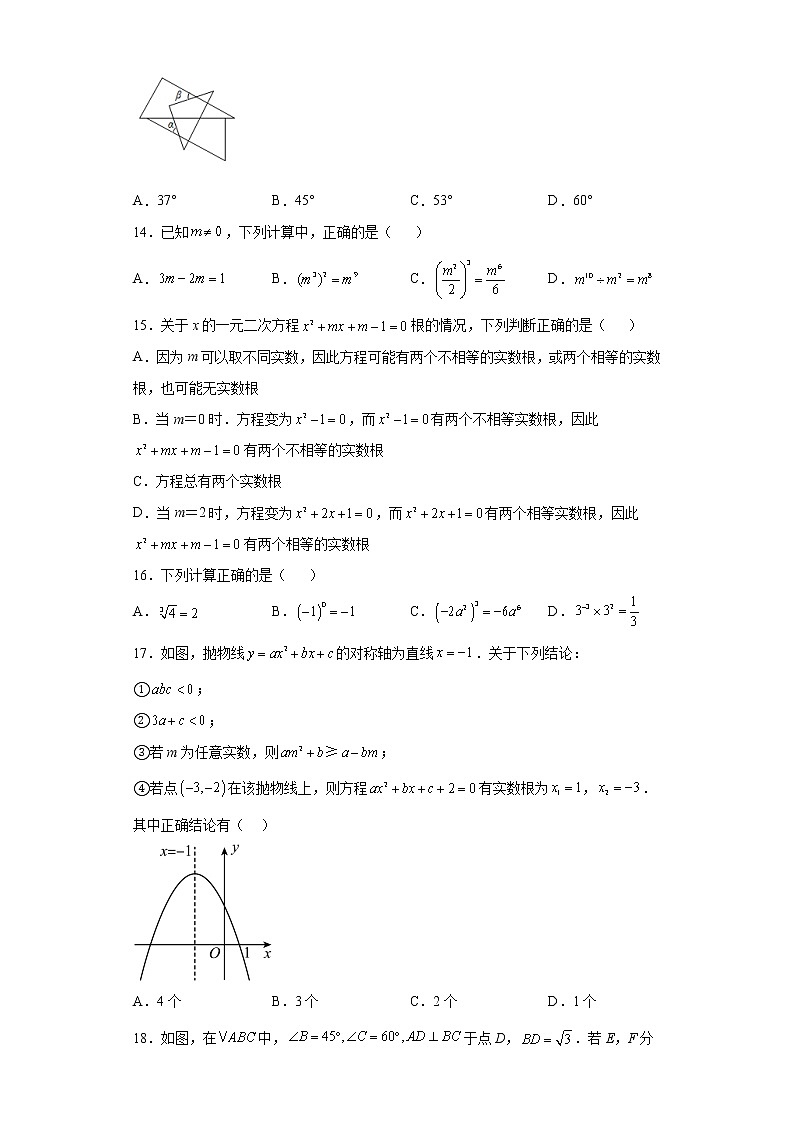 β
α
A．37° B．45° C．53° D．60°
14．已知m≠0，下列计算中，正确的是（ ）
A．3m－2m＝1 B．(m³)²＝m⁹ C．(m²/2)³＝m⁶/6 D．m¹⁰÷m²＝m⁸
15．关于x的一元二次方程x²＋mx＋m－1＝0根的情况，下列判断正确的是（ ）
A．因为m可以取不同实数，因此方程可能有两个不相等的实数根，或两个相等的实数
根，也可能无实数根
B．当m＝0时．方程变为x²－1＝0，而x²－1＝0有两个不相等实数根，因此
x²＋mx＋m－1＝0有两个不相等的实数根
C．方程总有两个实数根
D．当m＝2时，方程变为x²＋2x＋1＝0，而x²＋2x＋1＝0有两个相等实数根，因此
x²＋mx＋m－1＝0有两个相等的实数根
16．下列计算正确的是（ ）
A．∛4＝2 B．(－1)⁰＝－1 C．(－2a²)³＝－6a⁶ D．3⁻³×3²＝1/3
17．如图，抛物线y＝ax²＋bx＋c的对称轴为直线x＝－1．关于下列结论：
①abc＜0；
②3a＋c＜0；
③若m为任意实数，则am²＋b≥a－bm；
④若点(－3,－2)在该抛物线上，则方程ax²＋bx＋c＋2＝0有实数根为x₁＝1，x₂＝－3．
其中正确结论有（ ）
x=−1 y
O 1 x
A．4个 B．3个 C．2个 D．1个
18．如图，在VABC中，∠B＝45°,∠C＝60°,AD⊥BC于点D，BD＝√3．若E，F分